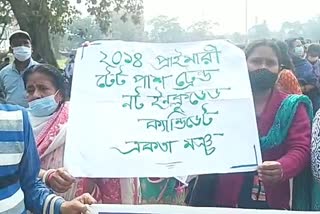 ২০১৪ প্রাইমারী
টেট পাশ ট্রেন্ড
নট ইনক্লুডেড
ক্যান্ডিডেট
একতা মঞ্চ